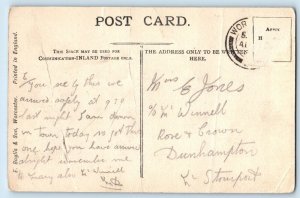 POST CARD.
THIS SPACE MAY BE USED FOR
COMMUNICATION-INLAND POSTAGE ONLY.
THE ADDRESS ONLY TO BE WRITTEN
HERE.
WOR
Printed in England.
& Son, Worcester.
You see by this we
arrived safely at 9.30
last night I am down
in town today so got this
one hope you have arrived
alright remember me
to Mary also Mr Winnell
Miss E Jones
c/o Mr Winnell
Rose & Crown
Dunhampton
Nr Stourport